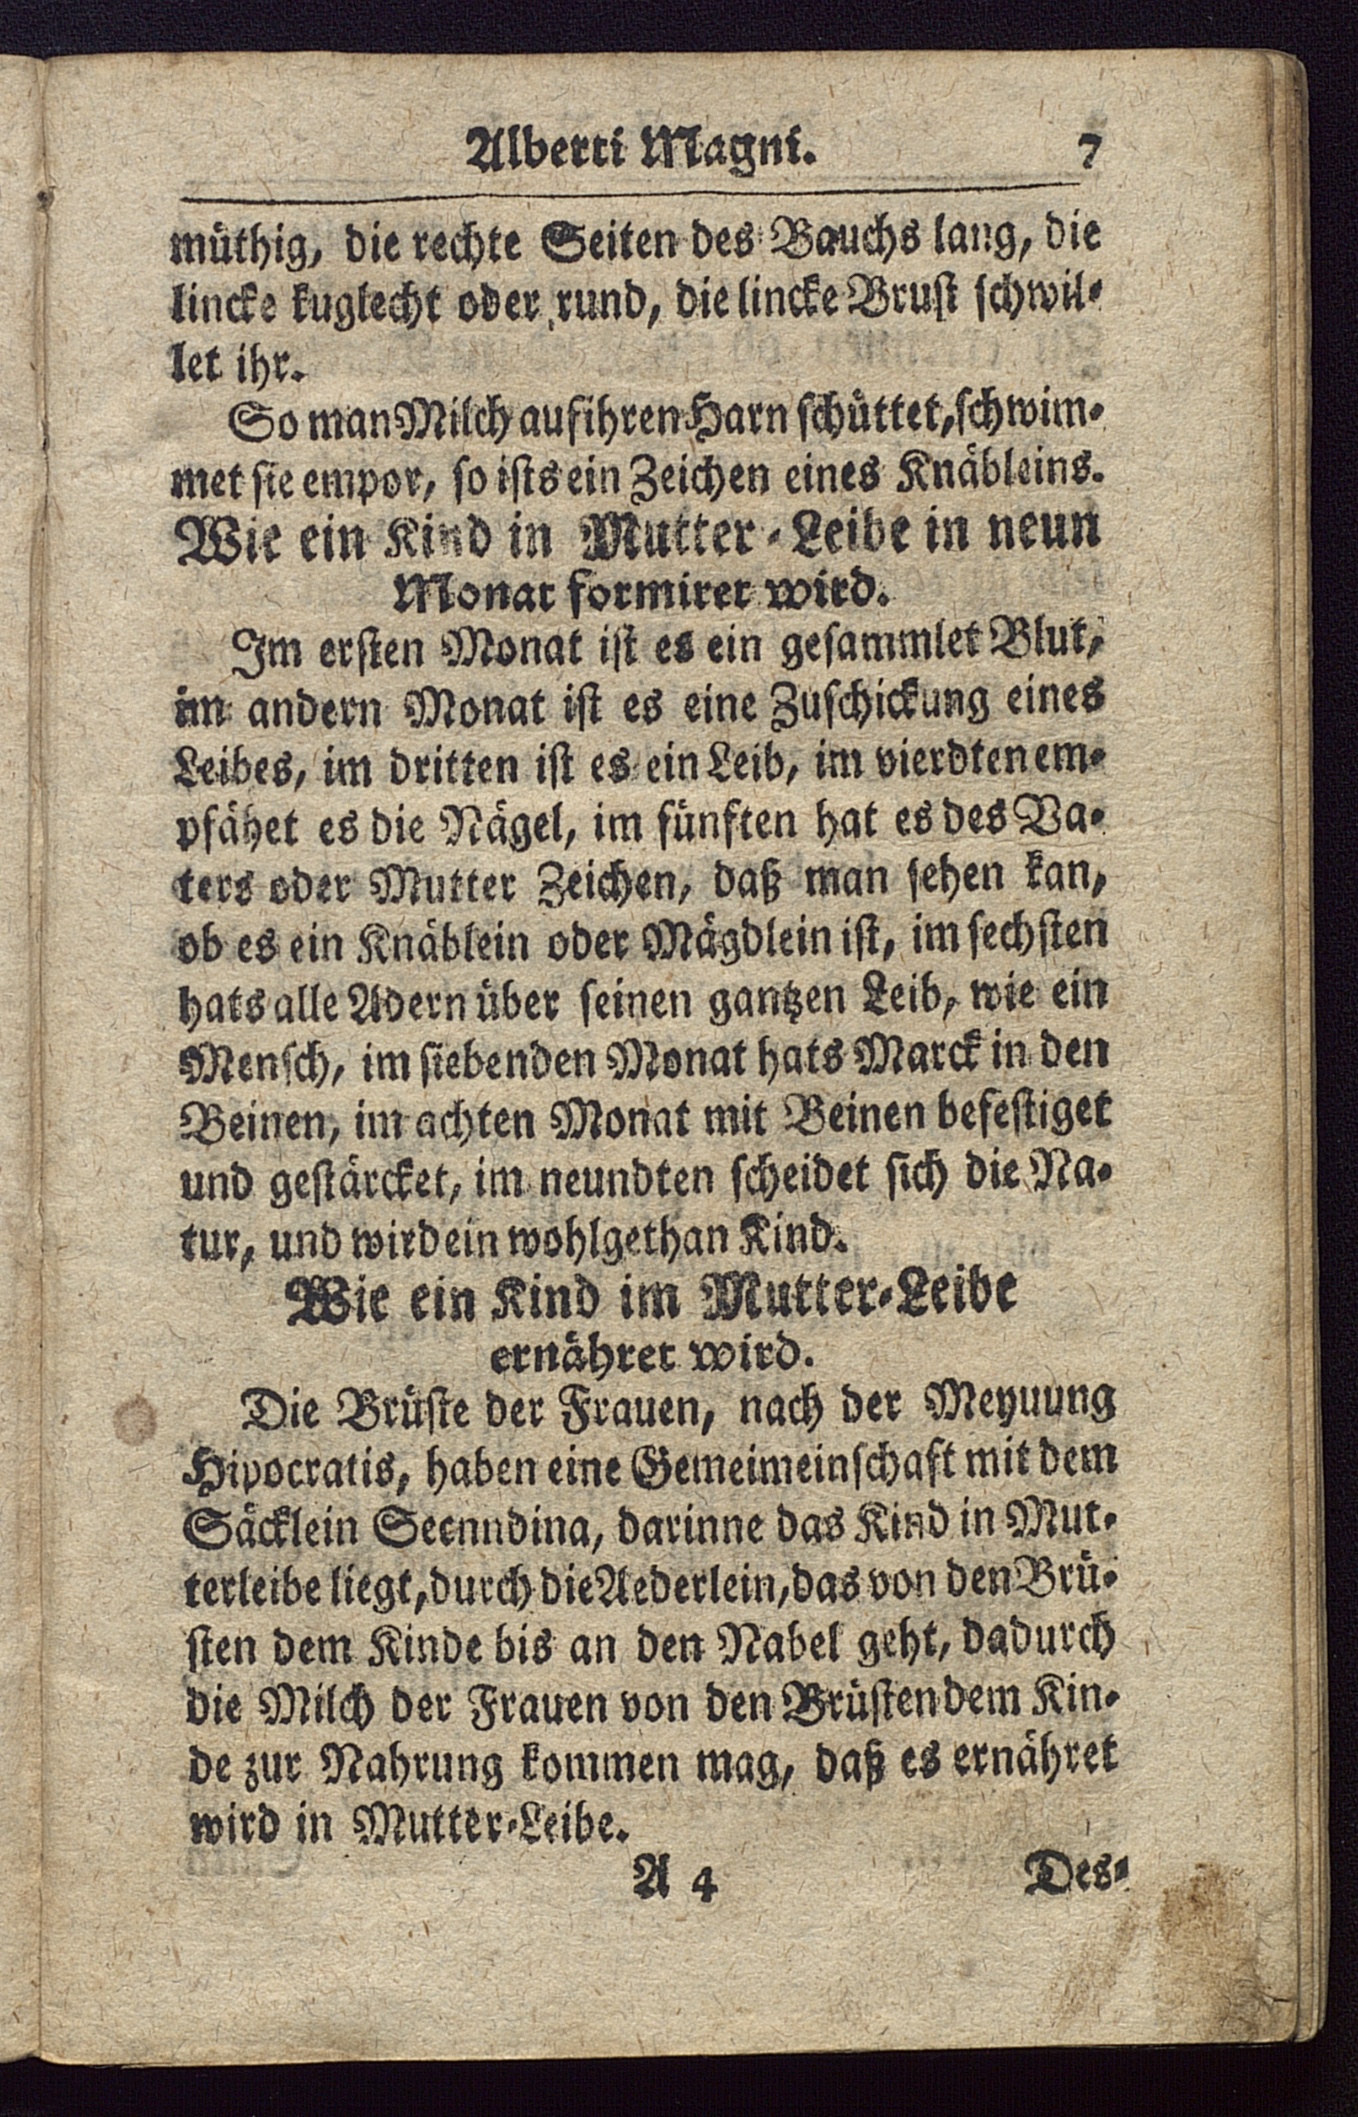 Alberti Magni. 7
müthig, die rechte Seiten des Bauchs lang, die
lincke kuglecht oder rund, die lincke Brust schwil-
let ihr.
So man Milch auf ihren Harn schüttet, schwim-
met sie empor, so ists ein Zeichen eines Knäbleins.
Wie ein Kind in Mutter-Leibe in neun
Monat formiret wird.
Im ersten Monat ist es ein gesammlet Blut,
im andern Monat ist es eine Zuschickung eines
Leibes, im dritten ist es ein Leib, im vierdten em-
pfähet es die Nägel, im fünften hat es des Va-
ters oder Mutter Zeichen, daß man sehen kan,
ob es ein Knäblein oder Mägdlein ist, im sechsten
hats alle Adern über seinen gantzen Leib, wie ein
Mensch, im siebenden Monat hats Marck in den
Beinen, im achten Monat mit Beinen befestiget
und gestärcket, im neundten scheidet sich die Na-
tur, und wird ein wohlgethan Kind.
Wie ein Kind im Mutter-Leibe
ernähret wird.
Die Brüste der Frauen, nach der Meyuung
Hipocratis, haben eine Gemeimeinschaft mit dem
Säcklein Seenndina, darinne das Kind in Mut-
terleibe liegt, durch die Aederlein, das von den Brü-
sten dem Kinde bis an den Nabel geht, dadurch
die Milch der Frauen von den Brüsten dem Kin-
de zur Nahrung kommen mag, daß es ernähret
wird in Mutter-Leibe.
A 4 Des-